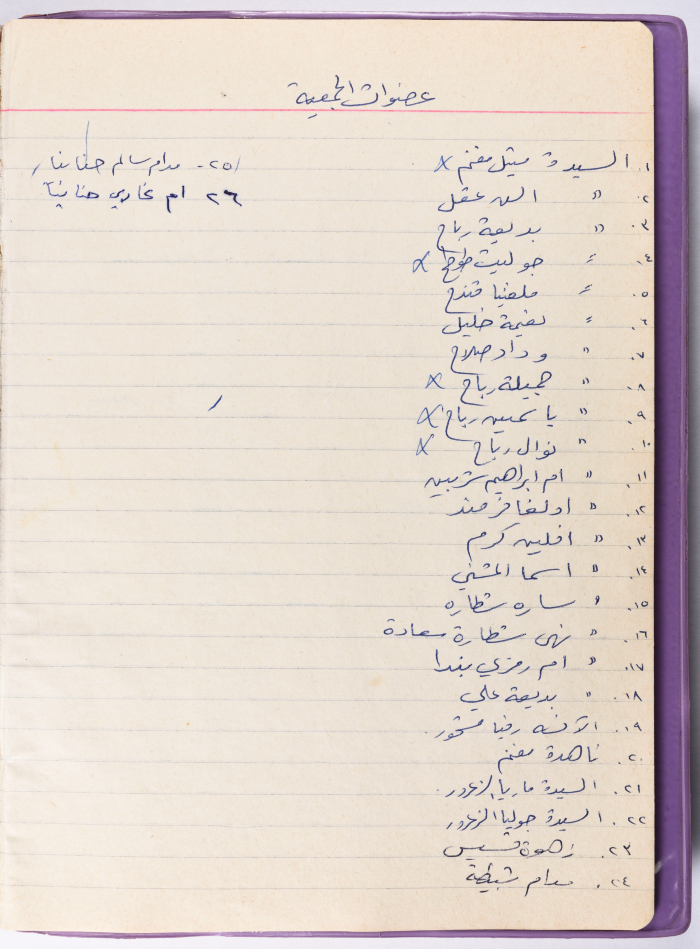 عضوات الجمعية
١. السيدة ميثل مغنم x
٢. " السن عقل
٣. " بديعة رباح
٤. " جوليت طوطح x
٥. " ملفنيا قندح
٦. " نعيمة خليل
٧. " وداد صلاح
٨. " جميلة رباح x
٩. " ياسمين رباح x
١٠. " نوال رباح x
١١. " ام ابراهيم شربين
١٢. " اولغا فرمند
١٣. " افلين كرم
١٤. " اسما المشني
١٥. " ساره شطاره
١٦. " نهى شطارة سعادة
١٧. " ام رمزي بندا
١٨. " بديعة علي
١٩. الآنسه رضيا
٢٠. ناهدة مغنم
٢١. السيدة ماريا الزعرور
٢٢. السيدة جوليا الزعرور
٢٣. زهوة قسيس
٢٤. مدام شبيطة
٢٥. مدام سالم حنانيا
٢٦ ام غازي حنانيا